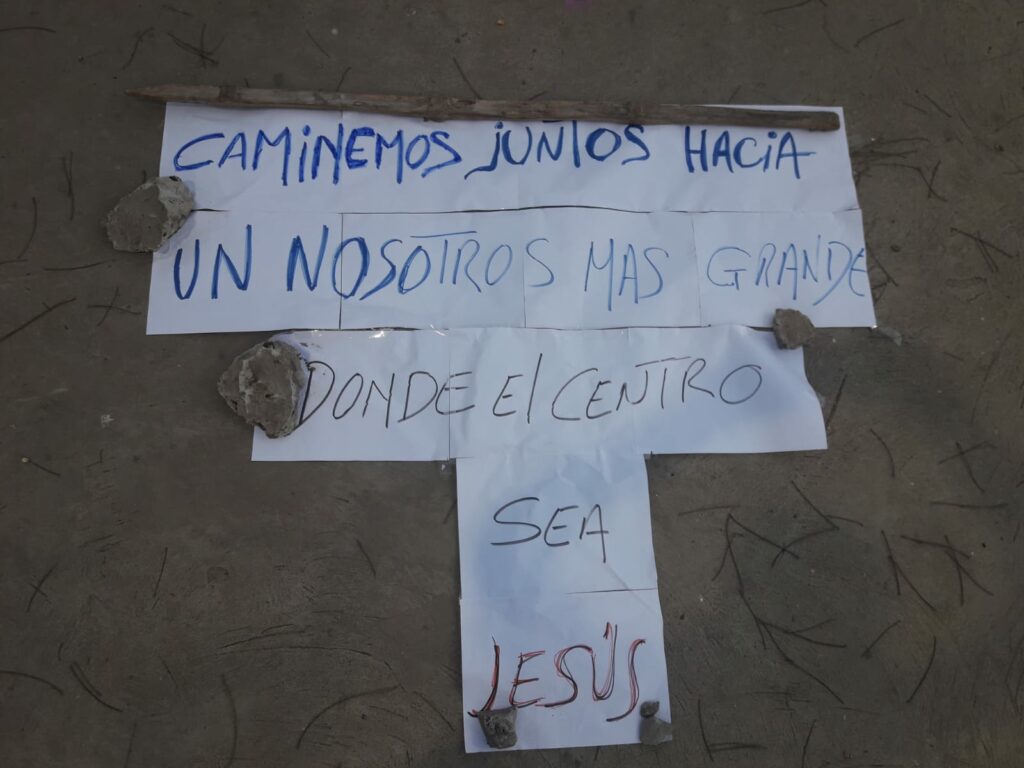 CAMINEMOS JUNTOS HACIA
UN NOSOTROS MAS GRANDE
DONDE El CENTRO
SEA
JESÚS